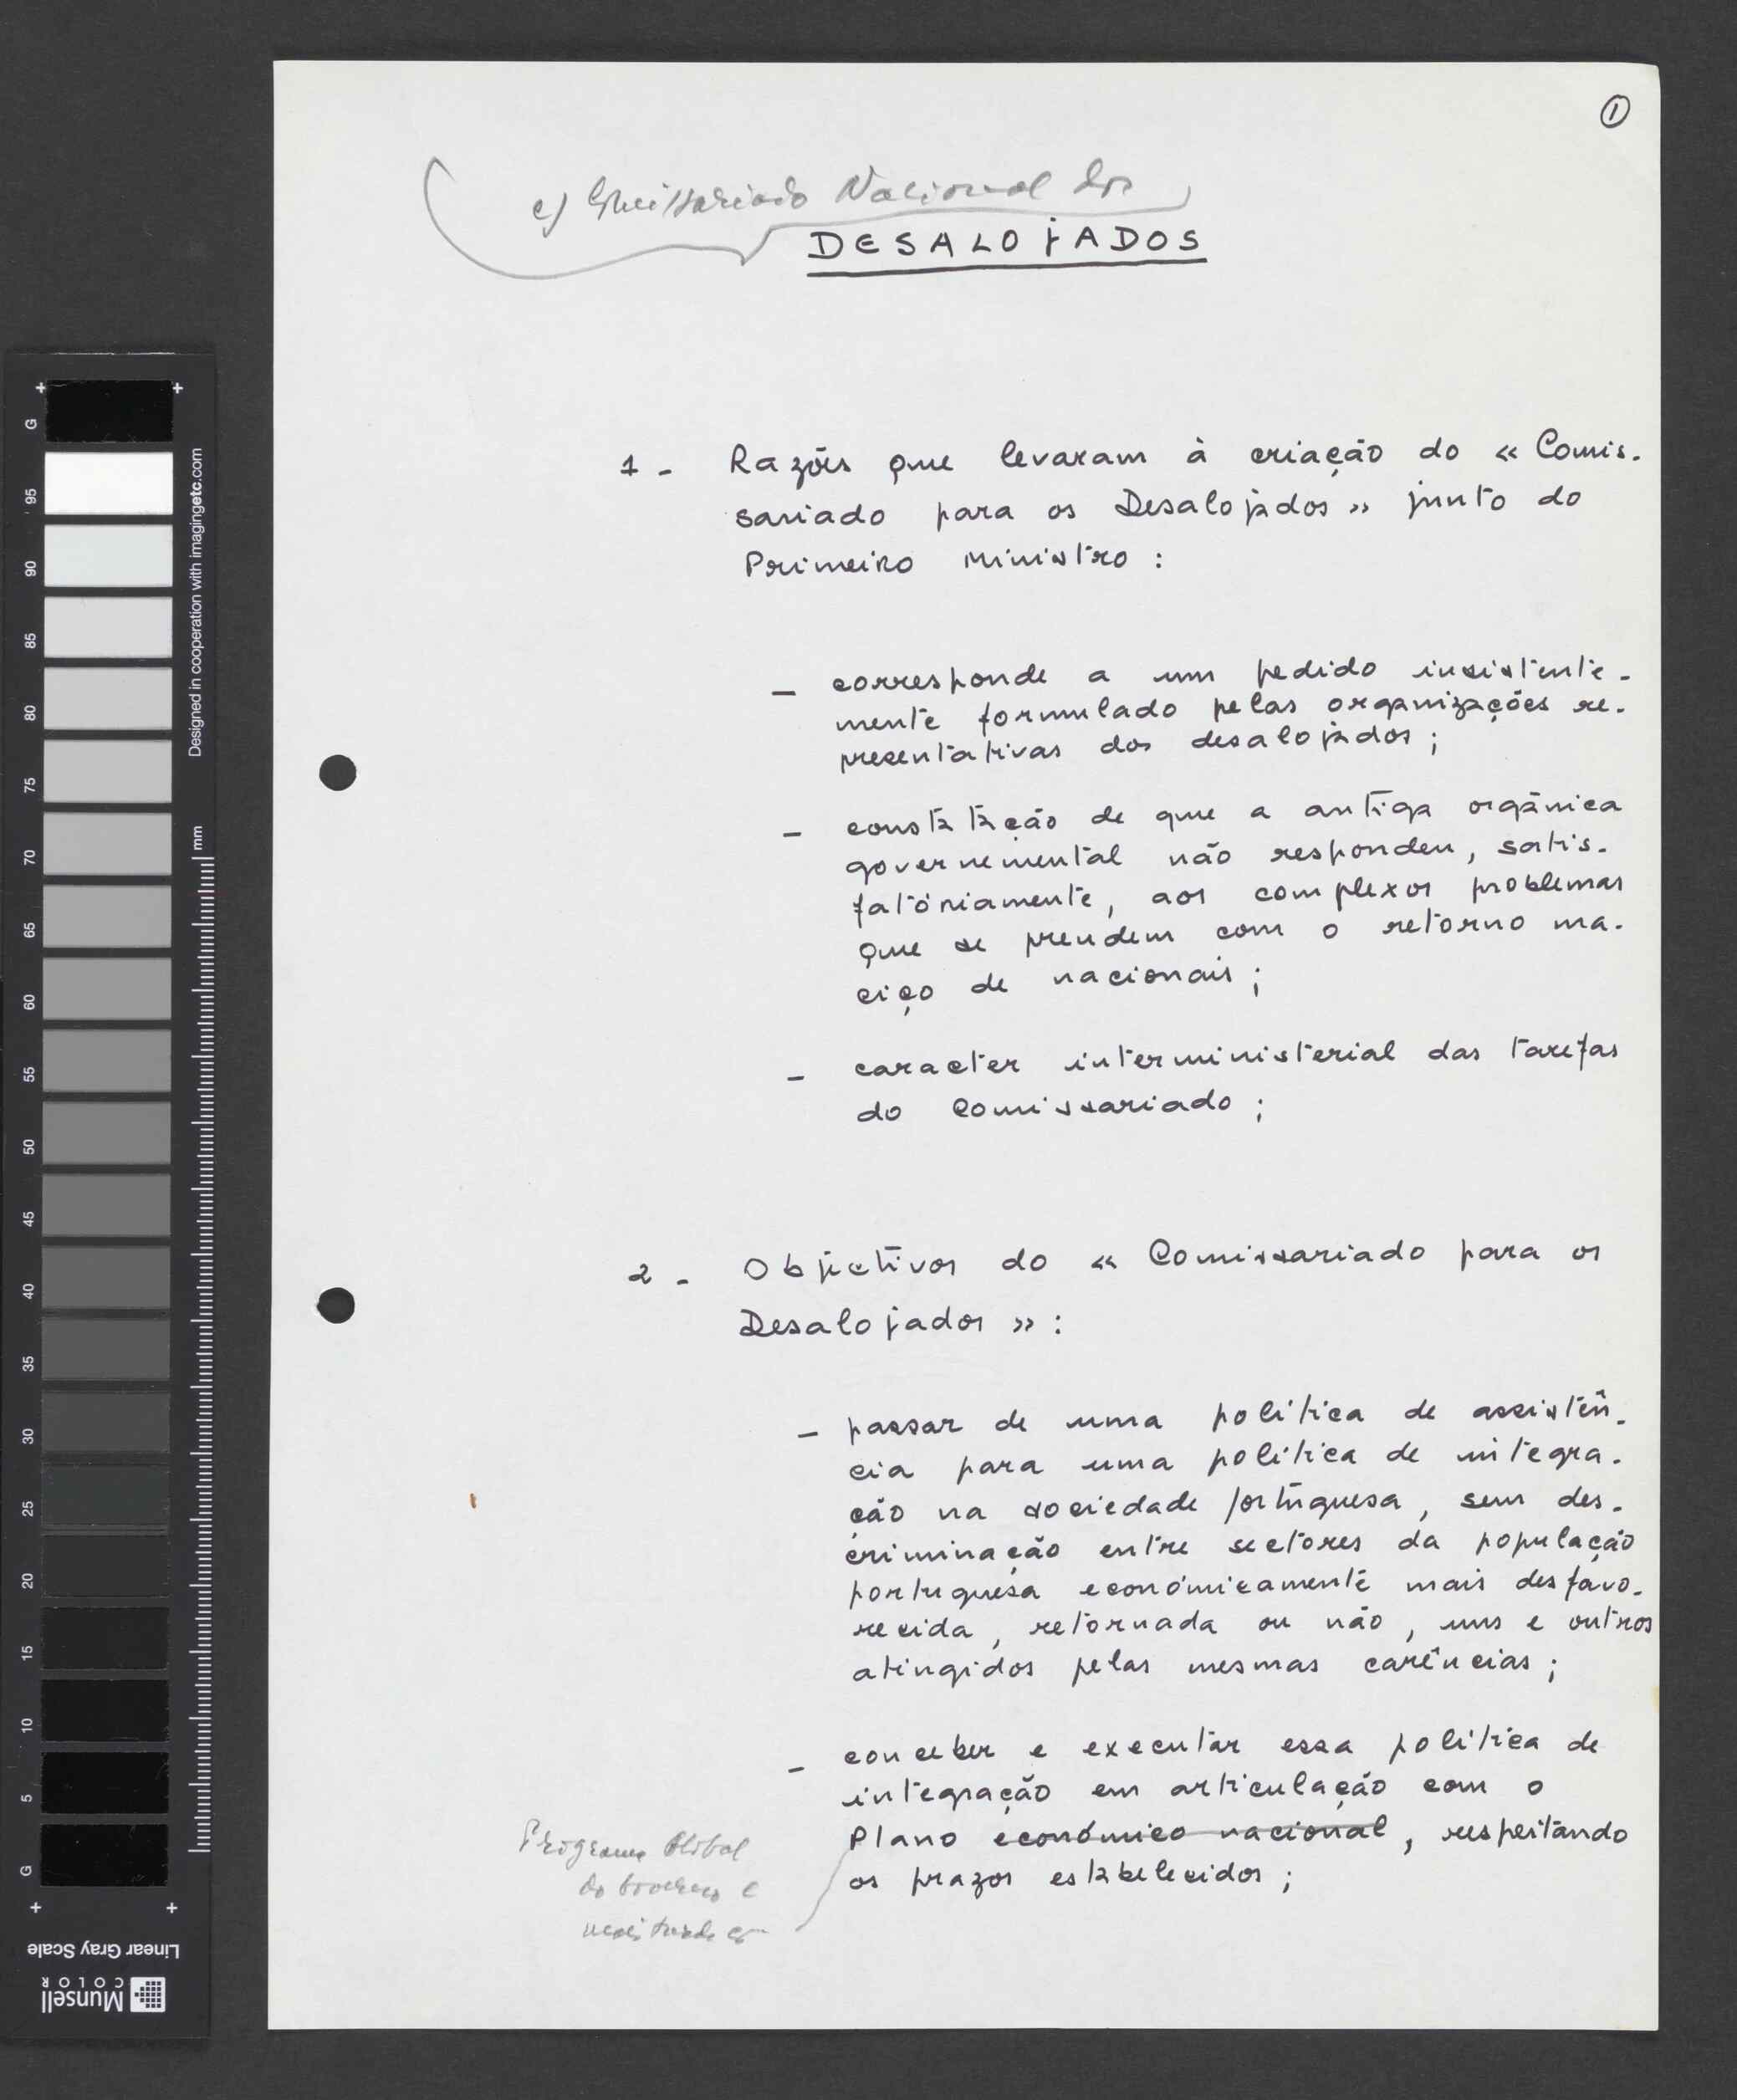 1
c) Comissariado Nacional dos
DESALOJADOS
1 - Razões que levaram à criação do « Comis-
sariado para os Desalojados » junto do
Primeiro Ministro :
- corresponde a um pedido insistente-
mente formulado pelas organizações re-
presentativas dos desalojados ;
- constatação de que a antiga orgânica
governemental não respondeu, satis-
fatóriamente, aos complexos problemas
que se prendem com o retorno ma-
ciço de nacionais ;
- caracter interministerial das tarefas
do Comissariado ;
2 - Objectivos do « Comissariado para os
Desalojados » :
- passar de uma política de assistên-
cia para uma política de integra-
ção na sociedade portuguesa, sem des-
criminação entre sectores da população
portuguesa económicamente mais desfavo-
recida, retornada ou não, uns e outros
atingidos pelas mesmas carências ;
- conceber e executar essa política de
integração em articulação com o
Plano económico nacional, respeitando
os prazos estabelecidos ;
Programa Global
do Governo e
mais tarde
G 95 90 85 80 75 70 65 60 55 50 45 40 35 30 25 20 15 10 5 G
Designed in cooperation with imagingetc.com
mm
Linear Gray Scale
Munsell
COLOR